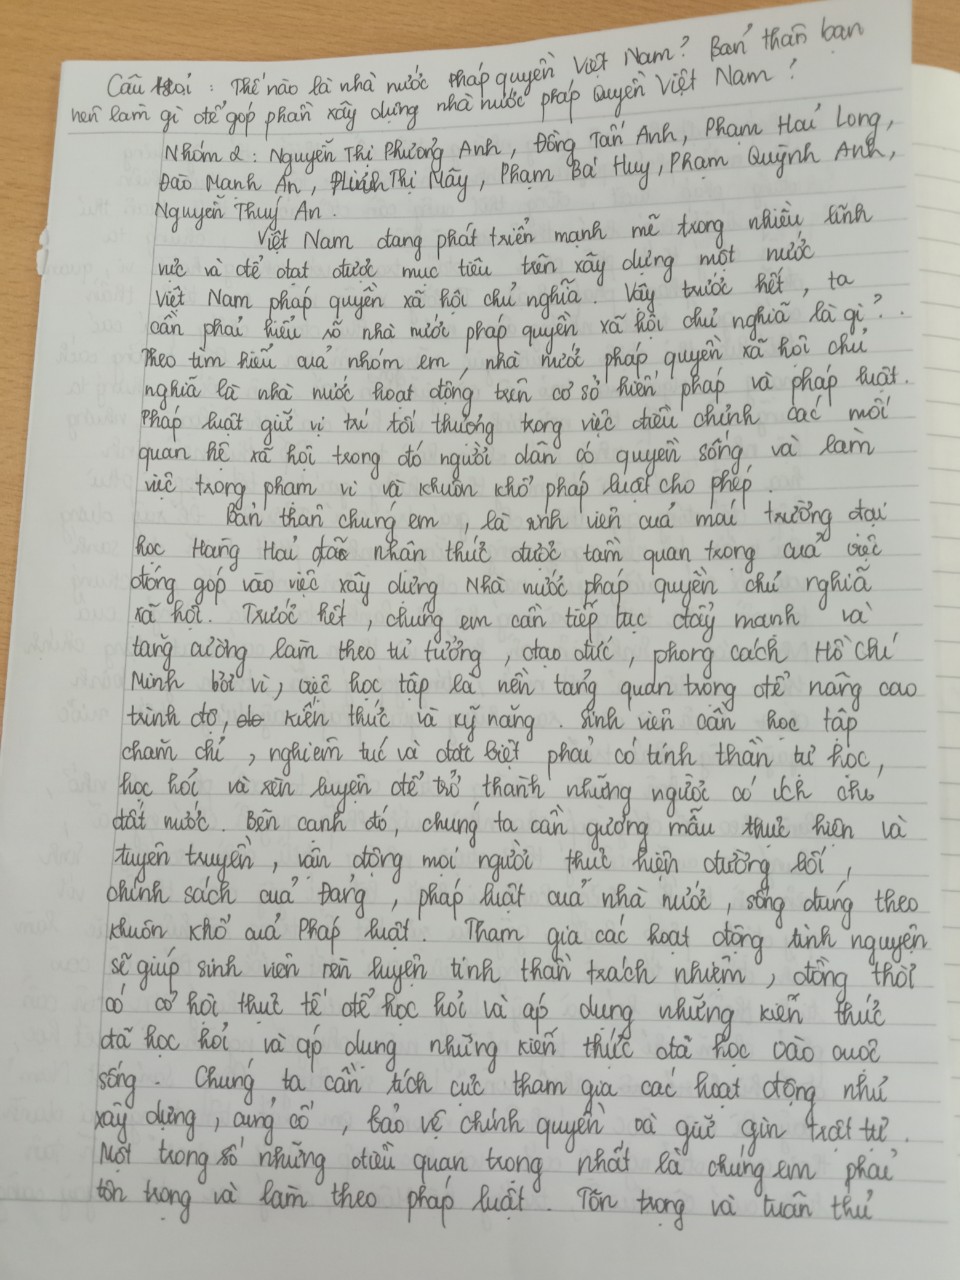 Câu hỏi : Thế nào là nhà nước pháp quyền Việt Nam ? Bản thân bạn
nên làm gì để góp phần xây dựng nhà nước pháp quyền Việt Nam ?
Nhóm 2 : Nguyễn Thị Phương Anh , Đồng Tấn Anh , Phạm Hải Long ,
Đào Mạnh An , Đinh Thị Mây , Phạm Bá Huy , Phạm Quỳnh Anh ,
Nguyễn Thuý An .
Việt Nam đang phát triển mạnh mẽ trong nhiều lĩnh
vực và để đạt được mục tiêu trên xây dựng một nước
Việt Nam pháp quyền xã hội chủ nghĩa . Vậy trước hết , ta
cần phải hiểu rõ nhà nước pháp quyền xã hội chủ nghĩa là gì ? .
Theo tìm hiểu của nhóm em , nhà nước pháp quyền xã hội chủ
nghĩa là nhà nước hoạt động trên cơ sở hiến pháp và pháp luật .
Pháp luật giữ vị trí tối thượng trong việc điều chỉnh các mối
quan hệ xã hội trong đó người dân có quyền sống và làm
việc trong phạm vi và khuôn khổ pháp luật cho phép .
Bản thân chúng em , là sinh viên của mái trường đại
học Hàng Hải đã nhận thức được tầm quan trọng của việc
đóng góp vào việc xây dựng Nhà nước pháp quyền chủ nghĩa
xã hội . Trước hết , chúng em cần tiếp tục đẩy mạnh và
tăng cường làm theo tư tưởng , đạo đức , phong cách Hồ Chí
Minh bởi vì , việc học tập là nền tảng quan trọng để nâng cao
trình độ , kiến thức và kỹ năng . Sinh viên cần học tập
chăm chỉ , nghiêm túc và đặc biệt phải có tinh thần tự học ,
học hỏi và rèn luyện để trở thành những người có ích cho
đất nước . Bên cạnh đó , chúng ta cần gương mẫu thực hiện và
tuyên truyền , vận động mọi người thực hiện đường lối ,
chính sách của Đảng , pháp luật của nhà nước , sống đúng theo
khuôn khổ của Pháp luật . Tham gia các hoạt động tình nguyện
sẽ giúp sinh viên rèn luyện tinh thần trách nhiệm , đồng thời
có cơ hội thực tế để học hỏi và áp dụng những kiến thức
đã học hỏi và áp dụng những kiến thức đã học vào cuộc
sống . Chúng ta cần tích cực tham gia các hoạt động như
xây dựng , củng cố , bảo vệ chính quyền và giữ gìn trật tự .
Một trong số những điều quan trọng nhất là chúng em phải
tôn trọng và làm theo pháp luật . Tôn trọng và tuân thủ